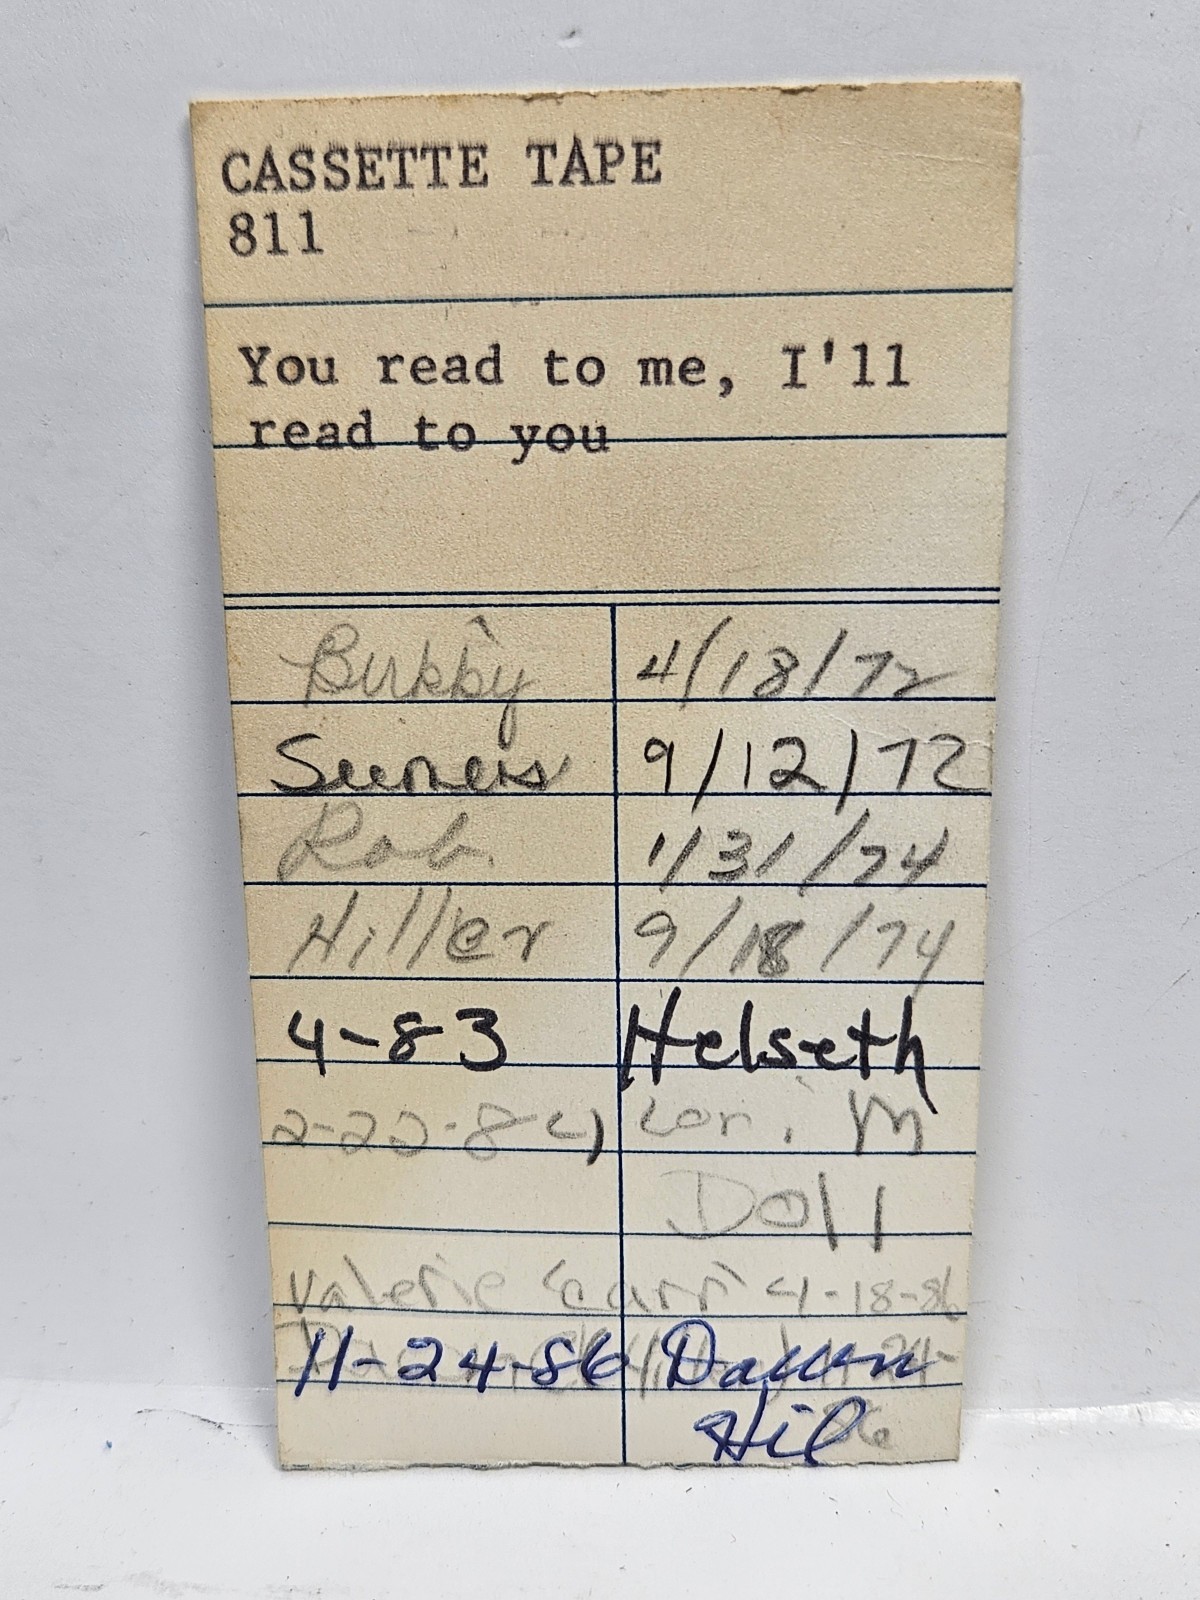 CASSETTE TAPE
811
You read to me, I'll
read to you
Birkby 4/18/72
9/12/72
Rob. 1/31/74
Hiller 9/18/74
4-83 Helseth
2-22-84 Lori M
Doll
Valerie Carr 4-18-86
11-24-86 Dawn
Hill